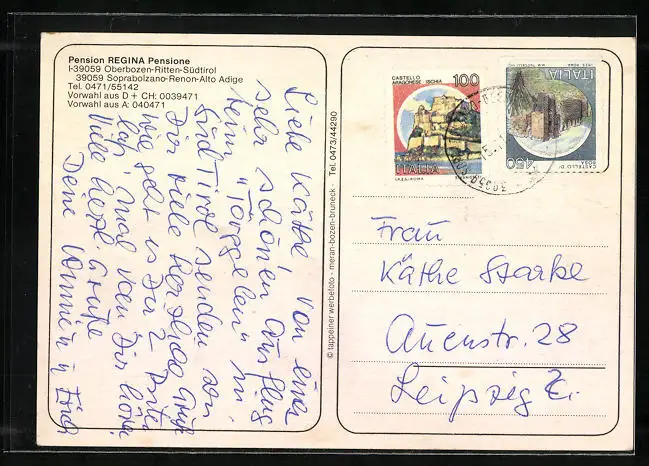 Pension REGINA Pensione
I-39059 Oberbozen-Ritten-Südtirol
39059 Soprabolzano-Renon-Alto Adige
Tel. 0471/55142
Vorwahl aus D + CH: 0039471
Vorwahl aus A: 040471
Liebe Käthe von einem
sehr schönen Ausflug
beim "Törggelen" in
Südtirol senden wir
Dir viele herzliche Grüße
wie geht es Dir?
laß mal von Dir hören
Viele herzl. Grüße
Deine
© tappeiner werbefoto - meran-bozen-bruneck - Tel. 0473/44290
CASTELLO
ARAGONESE - ISCHIA
100
ITALIA
ITALIA
450
CASTELLO DI
Frau
Käthe Starke
Auenstr. 28
Leipzig